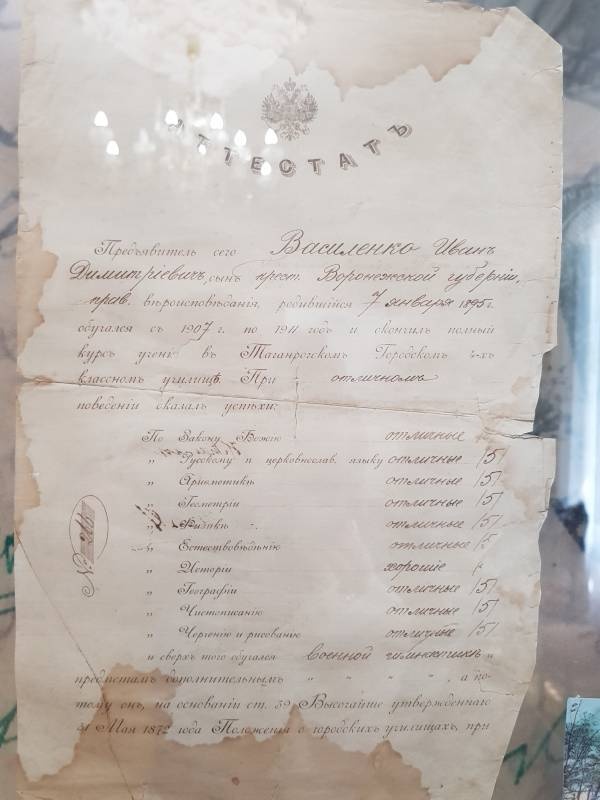 АТТЕСТАТЪ
Предъявитель сего Василенко Иванъ
Димитріевичъ, сынъ крест. Воронежской губерніи,
прав. вѣроисповѣданія, родившійся 7 января 1895 г.
обучался съ 1907 г. по 1911 годъ и окончилъ полный
курсъ ученія въ Таганрогскомъ Городскомъ 4-хъ
классномъ училищѣ. При отличномъ
поведеніи оказалъ успѣхи:
По Закону Божію отличные
„ Русскому и церковнослав. языку отличные /5/
„ Ариѳметикѣ отличные /5/
„ Геометріи отличные /5/
„ Физикѣ отличные /5/
„ Естествовѣдѣнію отличные /5
„ Исторіи хорошіе
„ Географіи отличные /5/
„ Чистописанію отличные /5/
„ Черченію и рисованію отличные /5/
и сверхъ того обучался Военной гимнастикѣ „
предметамъ дополнительнымъ „ „ „ „ , а по-
тому онъ, на основаніи ст. 39 Высочайше утвержденнаго
31 Мая 1872 года Положенія о городскихъ училищахъ, при
№